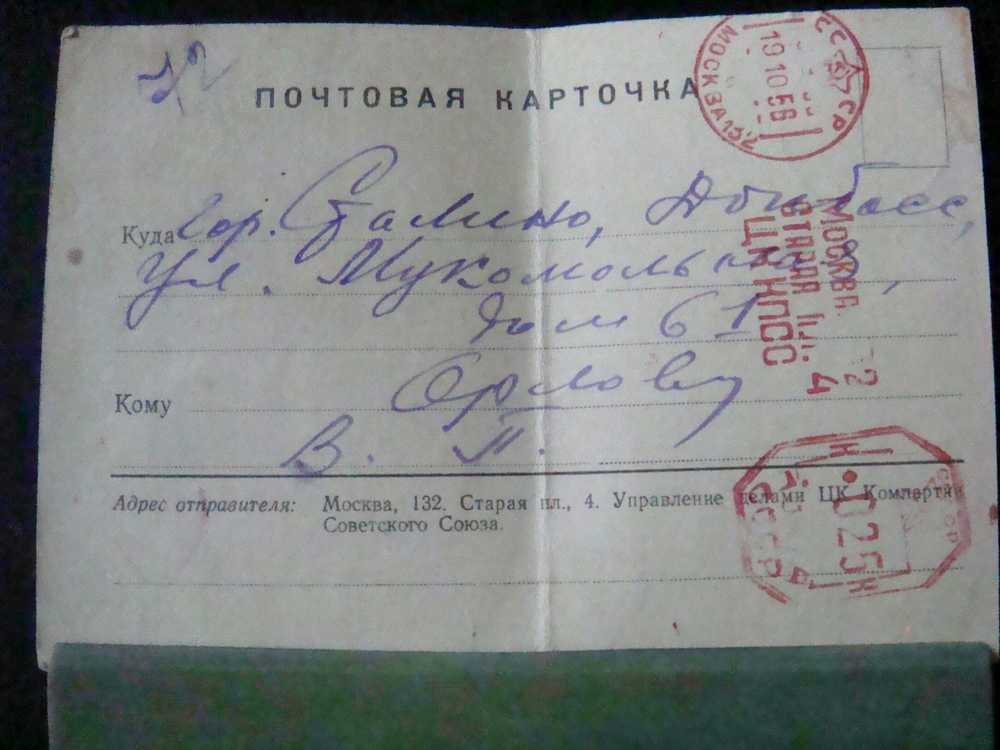 ПОЧТОВАЯ КАРТОЧКА
МОСКВА 132
СССР
19 10 56
Куда гор. Сталино, Донбасс,
Ул. Мукомольная,
дом 61
Кому Орлову
В. П.
МОСКВА
СТАРАЯ ПЛ. 4
ЦК КПСС
Адрес отправителя: Москва, 132. Старая пл., 4. Управление делами ЦК Компартии
Советского Союза.
СССР
025